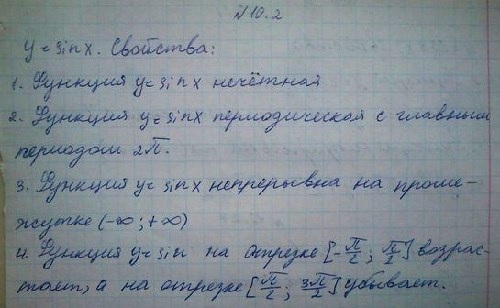 №10.2
y = sin x. Свойства:
1. Функция y = sin x нечётная
2. Функция y = sin x периодической с главным
периодом 2π.
3. Функция y = sin x непрерывна на проме-
жутке (-∞; +∞)
4. Функция y = sin на отрезке [-π/2; π/2] возрас-
тает, а на отрезке [π/2; 3π/2] убывает.